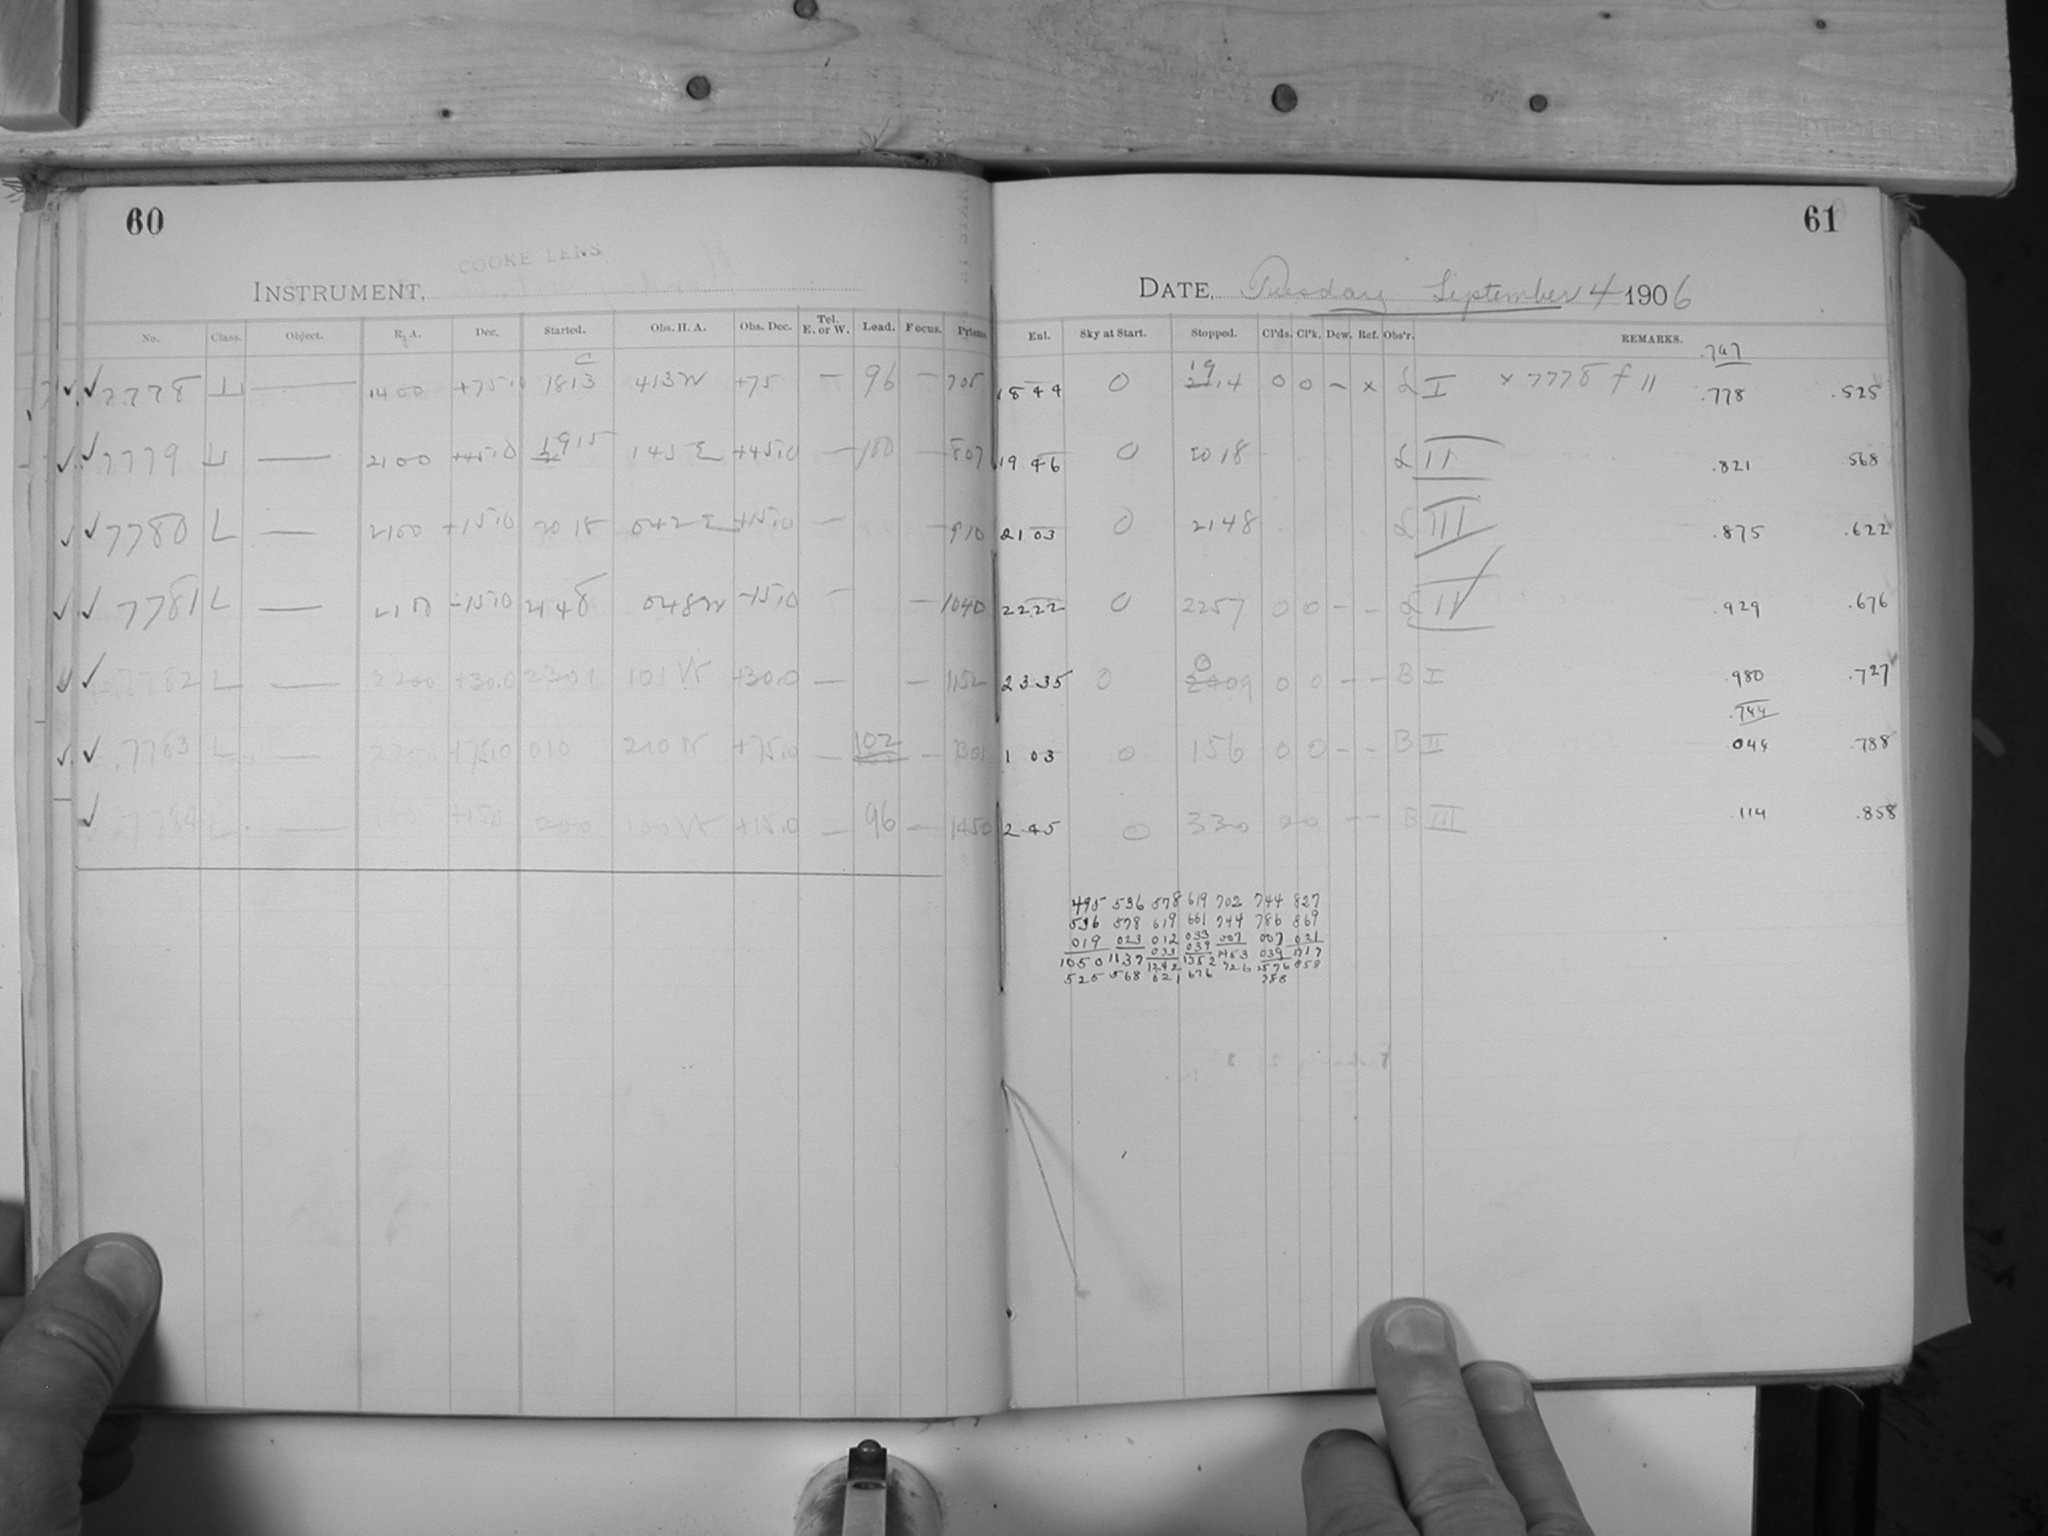 60
COOKE LENS
INSTRUMENT,
No. Class. Object. R. A. Dec. Started. Obs. H. A. Obs. Dec. Tel. E. or W. Load. Focus.
7778 L — 1400 +75.0 1813 413 W +75 — 96 — 705
7779 L — 2100 +45.0 1915 145 E +45.0 — 100 — 807
7780 L — 2100 +15.0 2018 042 E +15.0 — — 910
7781 L — -15.0 2148 048 W -15.0 — — 1040
7782 L — 2200 +30.0 2301 101 W +30.0 — — 1152
7783 L — +75.0 010 210 W +75.0 — 102 — 1301
7784 L — +15.0 200 100 W +15.0 — 96 — 1450
61
DATE, Tuesday September 4 1906
Enl. Sky at Start. Stopped. Cl'ds. Cl'k. Dew. Ref. Obs'r. REMARKS.
.747
1844 0 1914 0 0 — x L I x 7778 f 11 .778 .525
1946 0 2018 L II .821 568
2103 0 2148 L III .875 .622
2222 0 2257 0 0 — — L IV .929 .676
2335 0 009 0 0 — — B I .980 .727
.744
1 03 0 156 0 0 — — B II .044 .788
2 45 0 330 0 0 — — B III .114 .858
495 536 578 619 702 744 827
536 578 619 661 744 786 869
019 023 012 033 007 007 021
033 039 039
1050 1137 1242 1352 1453 1576 1717
525 568 621 676 726 788 858